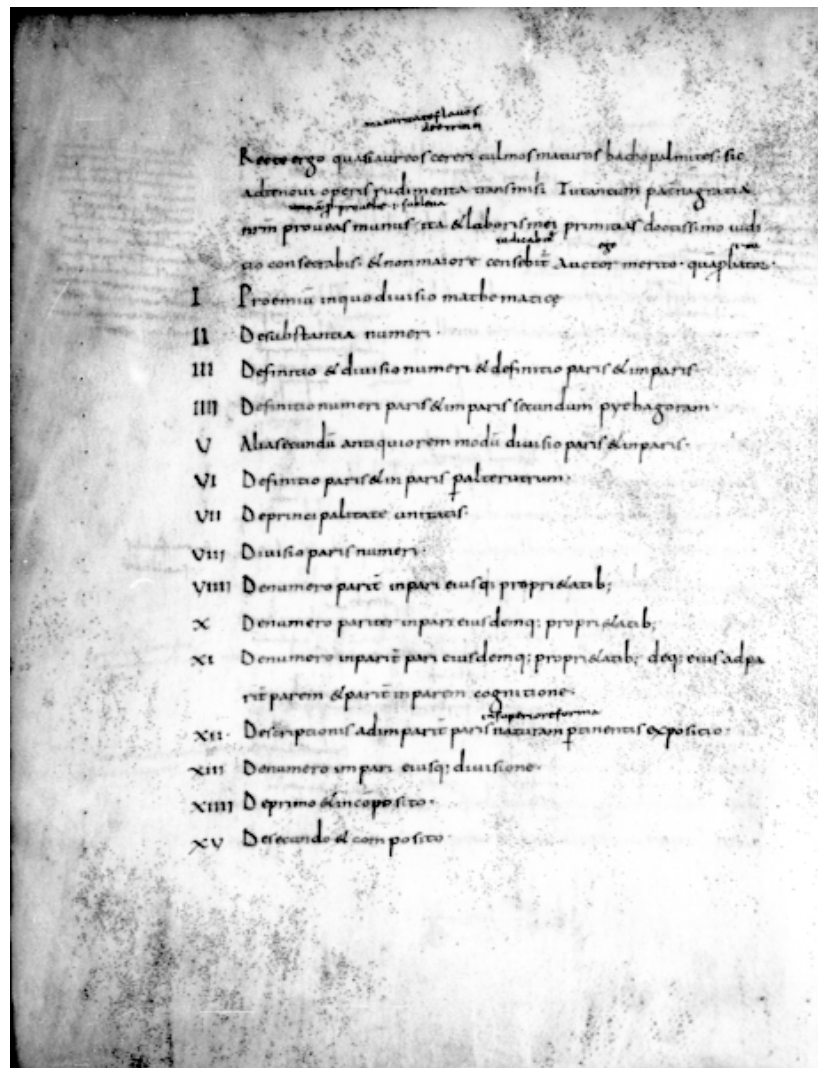 maturitate flavos
Recte ergo quasi aureos cereri culmos maturos bacho palmites. sic
ad te novi operis rudimenta transmisi. Tu tantum paterna gratia
provehe .i. subleva
nrm proveas munus. ita & laboris mei primitias doctissimo iudi
iudicabit ergo
tio consecrabis. & non maiore censebit Auctor merito. quā plator.
I Proemiū in quo divisio mathematicę
II De substantia numeri.
III Definitio & divisio numeri & definitio paris & inparis.
IIII Definitio numeri paris & inparis secundum pythagoram.
V Alia secundū antiquiorem modū divisio paris & inparis.
VI Definitio paris & inparis p alterutrum.
VII De principalitate unitatis.
VIII Divisio paris numeri.
VIIII De numero parit inpari eiusq; propri&atib;
X De numero pariter inpari eiusdemq; propri&atib;
XI De numero inparit pari eiusdemq; propri&atib; deq; eius ad pa
rit parem & parit inparem cognitione.
in superiore forma
XII. Descriptionis ad inparit paris naturam ptinentis expositio.
XIII De numero inpari eiusq; divisione.
XIIII De primo & incōposito.
XV De secundo & composito.